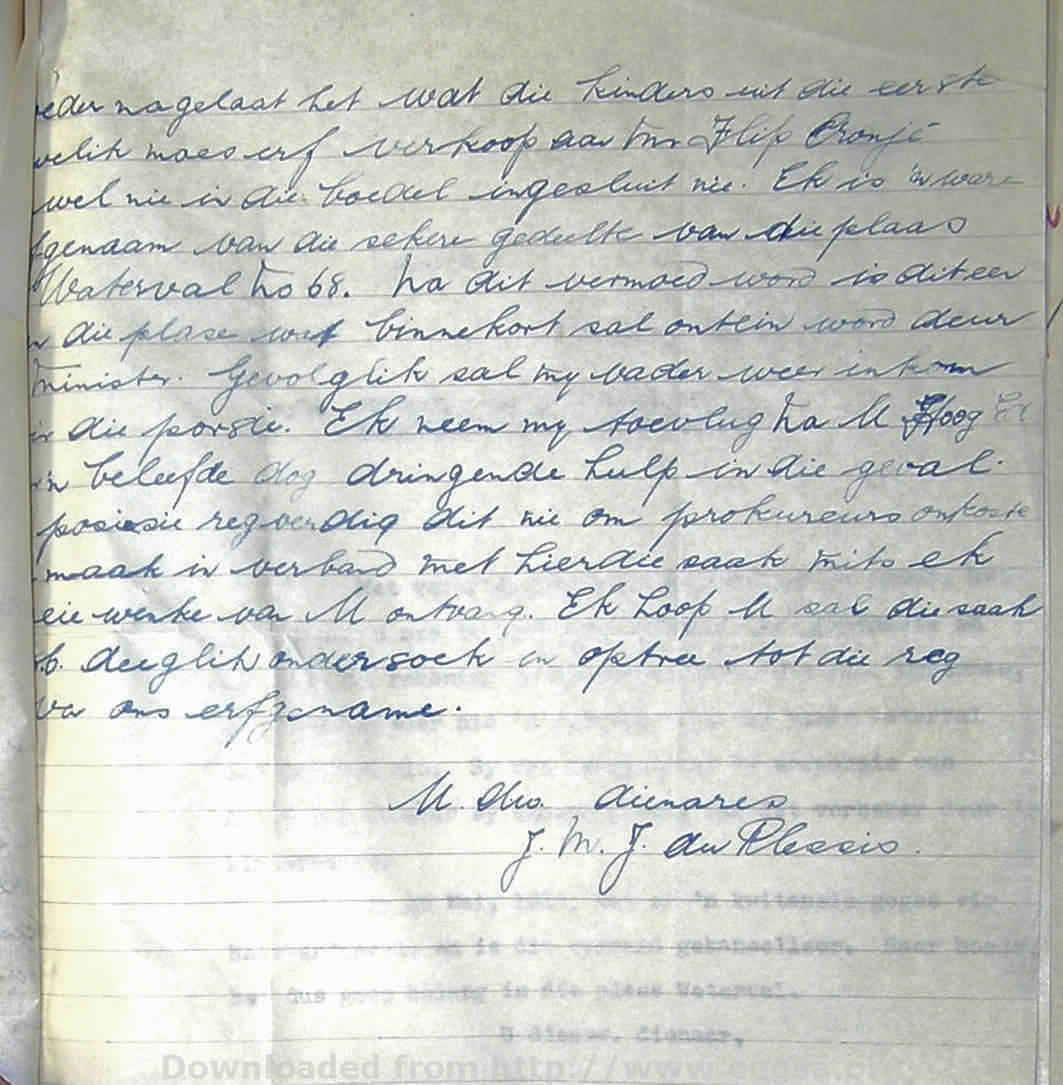 eder nagelaat het wat die kinders uit die eerste
welik moes erf verkoop aan Mr. Flip Cronjé
wel nie in die boedel ingesluit nie. Ek is 'n ware
fgenaam van die sekere gedeelte van die plaas
Waterval No 68. Na dit vermoed word is dit een
n die plase wat binnekort sal ontein word deur
minister. Gevolglik sal my vader weer inkom
in die porsie. Ek neem my toevlug na U Hoog Ed
'n beleefde dog dringende hulp in die geval.
posiesie regverdig dit nie om prokureurs onkoste
maak in verband met hierdie saak mits ek
eie wenke van U ontvang. Ek hoop U sal die saak
b. deeglik ondersoek en optree tot die reg
va ons erfgename.
U. dw. dienares
J. M. J. du Plessis.
'n kwitansie
is die gekanselleer.
dus in die plaas Waterval.
U dienaar,
Downloaded from http://www.eggsa.